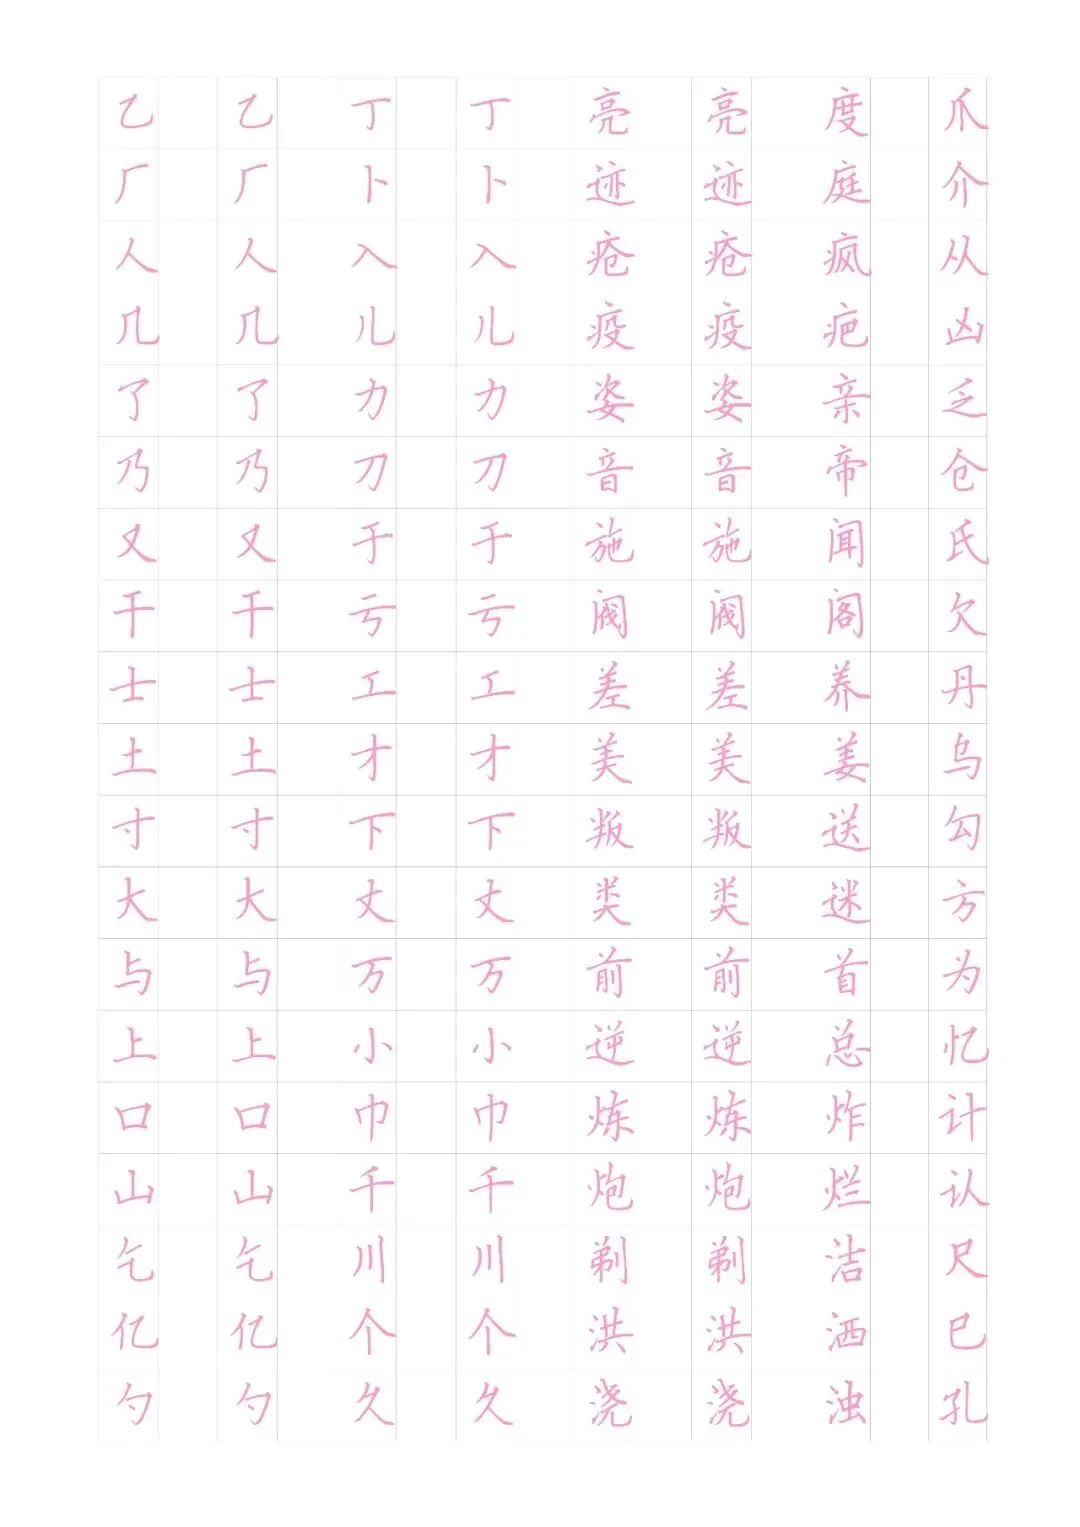 乙 乙 丁 丁 亮 亮 度 爪
厂 厂 卜 卜 迹 迹 庭 介
人 人 入 入 疮 疮 疯 从
几 几 儿 儿 疫 疫 疤 凶
了 了 力 力 姿 姿 亲 乏
乃 乃 刀 刀 音 音 帝 仓
又 又 于 于 施 施 闻 氏
干 干 亏 亏 阀 阀 阁 欠
士 士 工 工 差 差 养 丹
土 土 才 才 美 美 姜 乌
寸 寸 下 下 叛 叛 送 勾
大 大 丈 丈 类 类 迷 方
与 与 万 万 前 前 首 为
上 上 小 小 逆 逆 总 忆
口 口 巾 巾 炼 炼 炸 计
山 山 千 千 炮 炮 烂 认
乞 乞 川 川 剃 剃 洁 尺
亿 亿 个 个 洪 洪 洒 巳
勺 勺 久 久 浇 浇 浊 孔